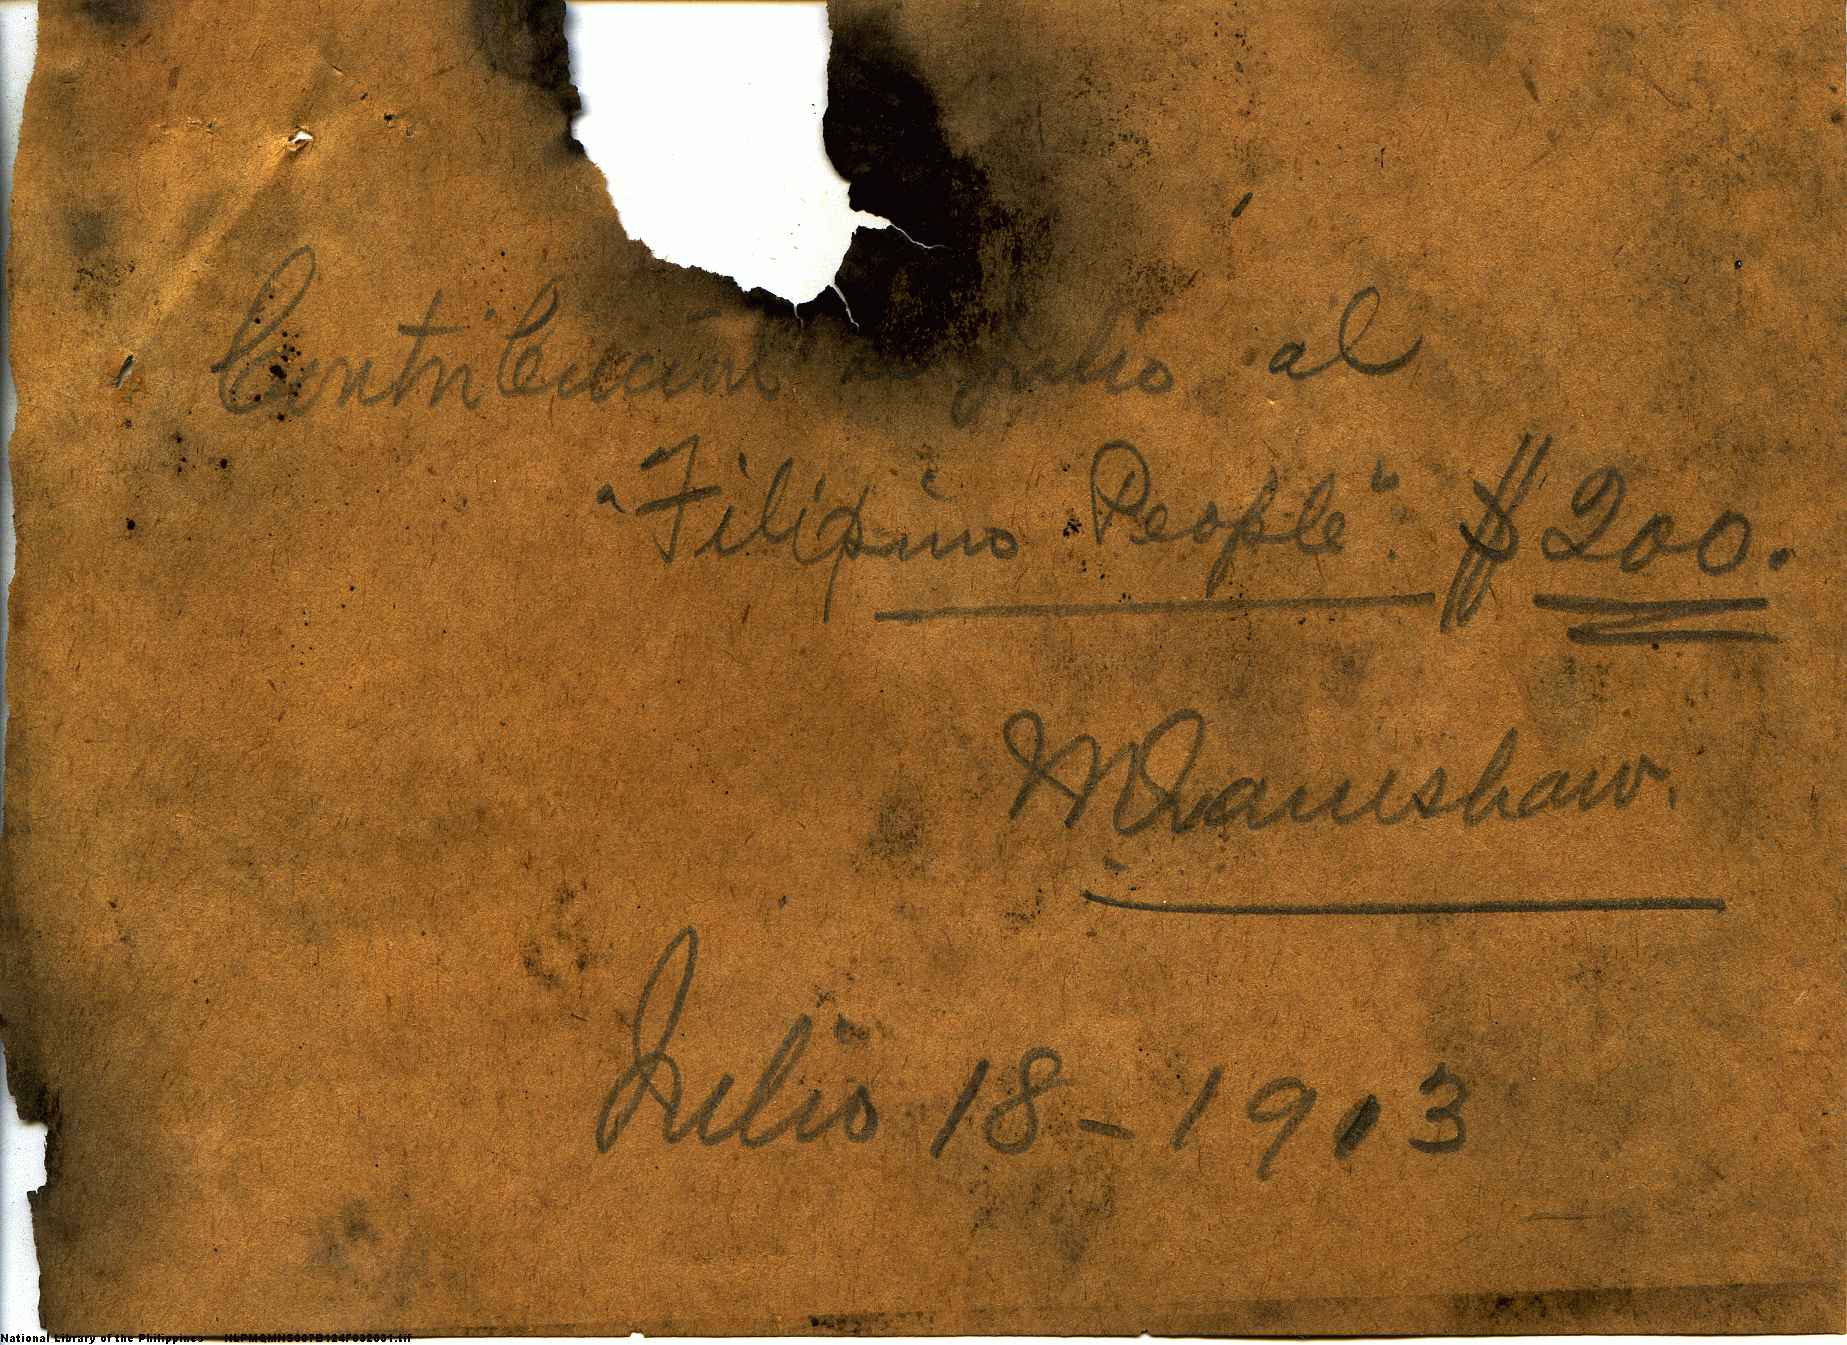 Contribución de Julio al
"Filipino People". $200.
Julio 18-1913
National Library of the Philippines